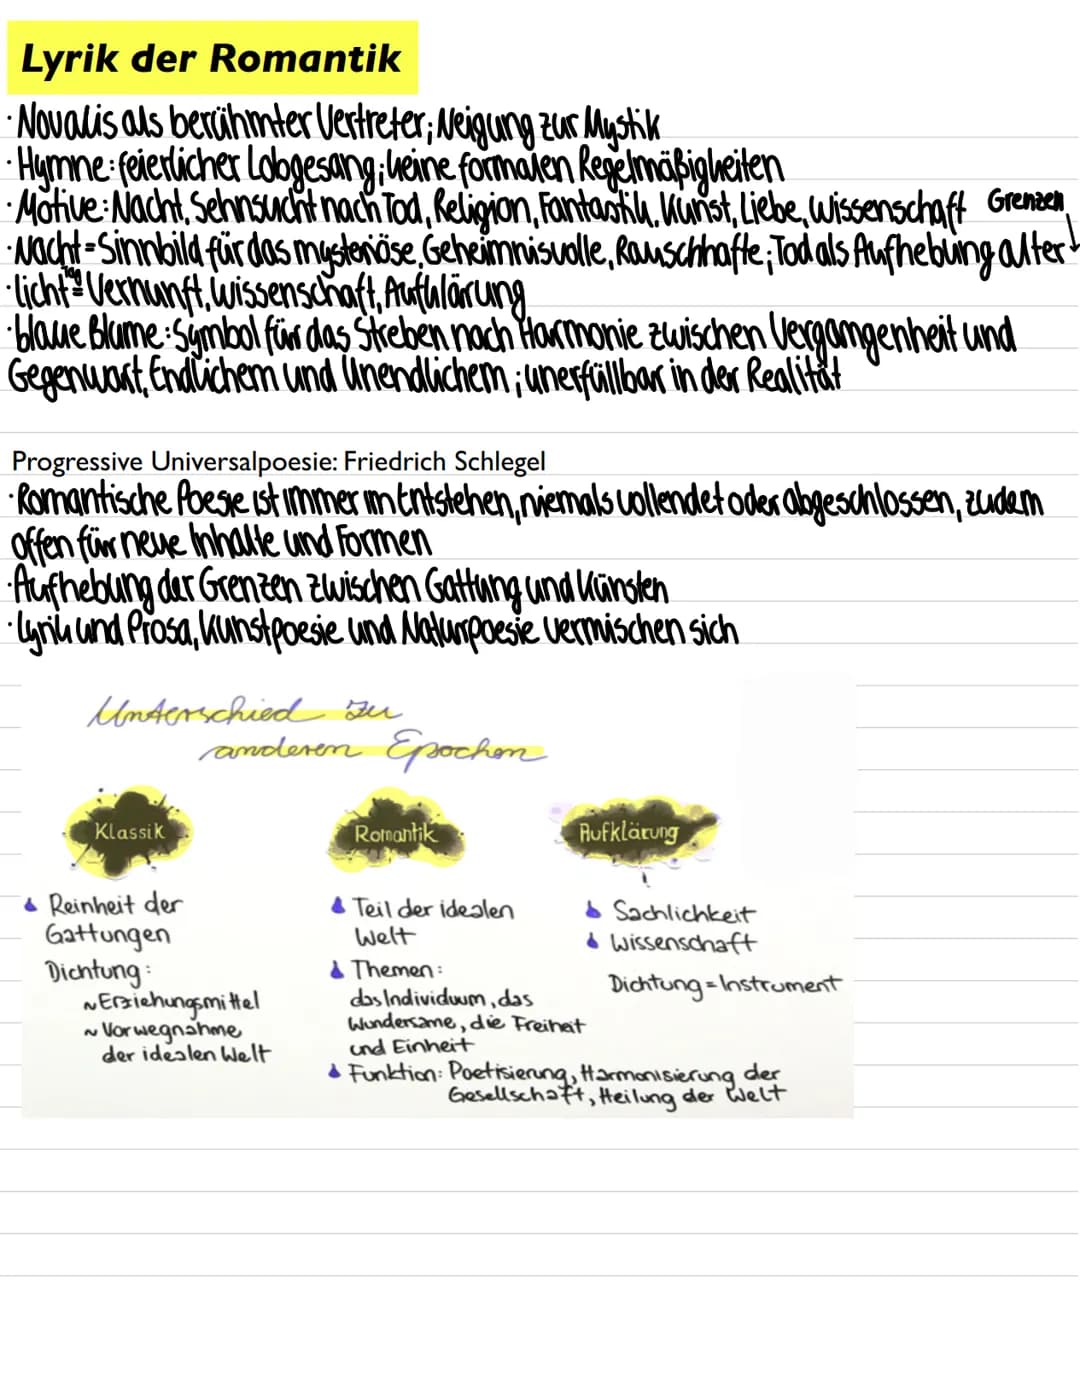 Lyrik der Romantik
·Novalis als berühmter Vertreter; Neigung zur Mystik
·Hymne: feierlicher Lobgesang; keine formalen Regelmäßigkeiten
·Motive: Nacht, Sehnsucht nach Tod, Religion, Fantastik, Kunst, Liebe, Wissenschaft Grenzen
·Nacht=Sinnbild für das mysteriöse, Geheimnisvolle, Rauschhafte; Tod als Aufhebung alter ↓
·licht/Tag = Vernunft, Wissenschaft, Aufklärung
·blaue Blume: Symbol für das Streben nach Harmonie zwischen Vergangenheit und
Gegenwart, Endlichem und Unendlichem; unerfüllbar in der Realität
Progressive Universalpoesie: Friedrich Schlegel
·Romantische Poesie ist immer im Entstehen, niemals vollendet oder abgeschlossen, zudem
offen für neue Inhalte und Formen
·Aufhebung der Grenzen zwischen Gattung und Künsten
·Lyrik und Prosa, Kunstpoesie und Naturpoesie vermischen sich
Unterschied zu
anderen Epochen
Klassik
Reinheit der
Gattungen
Dichtung:
~Erziehungsmittel
~Vorwegnahme
der idealen Welt
Romantik
Teil der idealen
Welt
Themen:
das Individuum, das
Wundersame, die Freiheit
und Einheit
Funktion: Poetisierung, Harmonisierung der
Gesellschaft, Heilung der Welt
Aufklärung
Sachlichkeit
Wissenschaft
Dichtung=Instrument